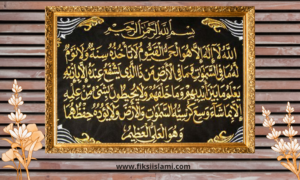 بسم الله الرحمن الرحيم
الله لا اله الا هو الحي القيوم لا تأخذه سنة ولا نوم
له ما في السموت وما في الارض من ذا الذي يشفع عنده الا باذنه
يعلم ما بين ايديهم وما خلفهم ولا يحيطون بشئ من علمه
الا بما شاء وسع كرسيه السموت والارض ولا يؤده حفظهما
وهو العلي العظيم
www.fiksiislami.com